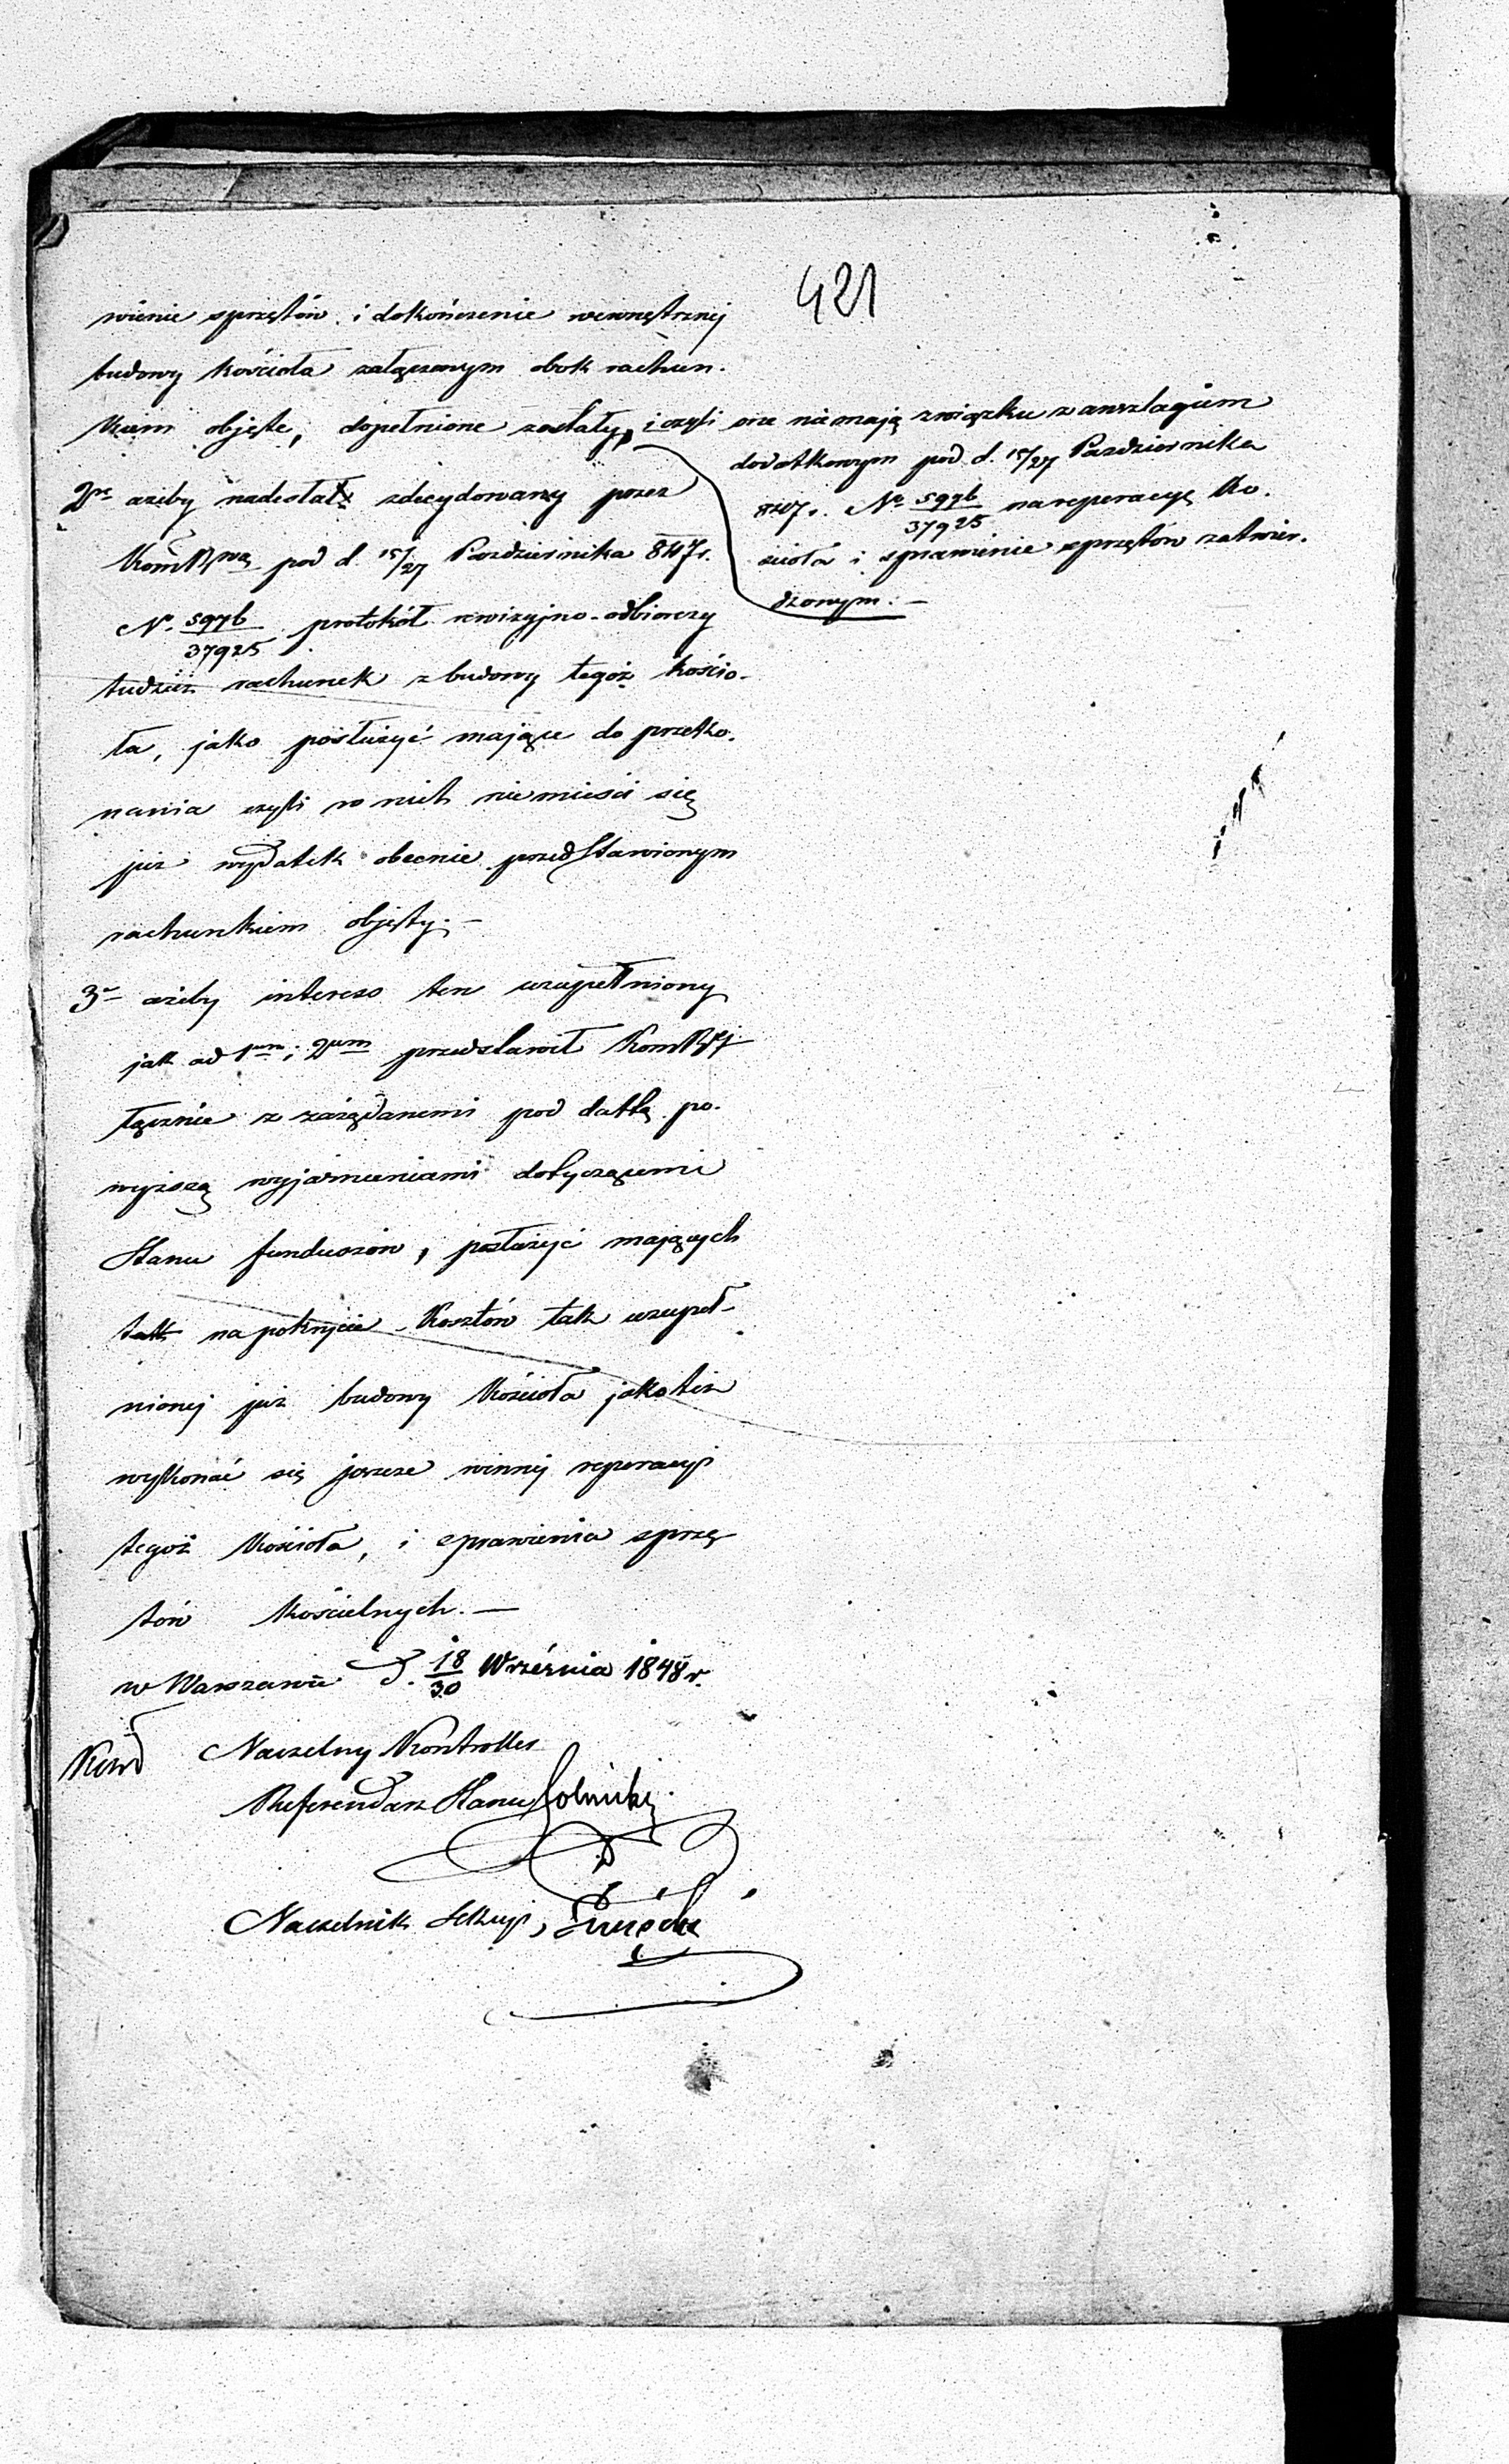 421
wienie sprzętów i dokończenie wewnętrznej
budowy kościoła załączonym obok rachun-
kiem objęte, dopełnione zostały, i czyli one nie mają związku z anszlagiem
dodatkowym pod d. 15/27 Pazdziernika
847 r. No 5976/37925 na reperacyę Ko-
ścioła i sprawienie sprzętów zatwier-
dzonym. –
2re ażeby nadesłał zdecydowany przez
pod d. 15/27 Pazdziernika 847 r.
No. 5976/37925 protokół rewizyjno-odbiorczy
tudzież rachunek z budowy tegoż kościo-
ła, jako posłużyć mające do przeko-
nania czyli w nich nie mieści się
już wydatek obecnie przedstawionym
rachunkiem objęty. –
3e ażeby interess ten uzupełniony
jak ad 1um i 2um przedstawił
łącznie z zażądanemi pod datą po-
wyższą wyjaśnieniami dotyczącemi
Stanu funduszów, posłużyć mających
tak na pokrycie Kosztów tak uzupeł-
nionej już budowy Kościoła jako też
wykonać się jeszcze winnej reperacyi
tegoż Kościoła, i sprawienia sprzę-
tów Kościelnych. –
w Warszawie d. 18/30 Września 1848 r.
Naczelny Kontroller
Referendarz Stanu
Naczelnik Sekcyi